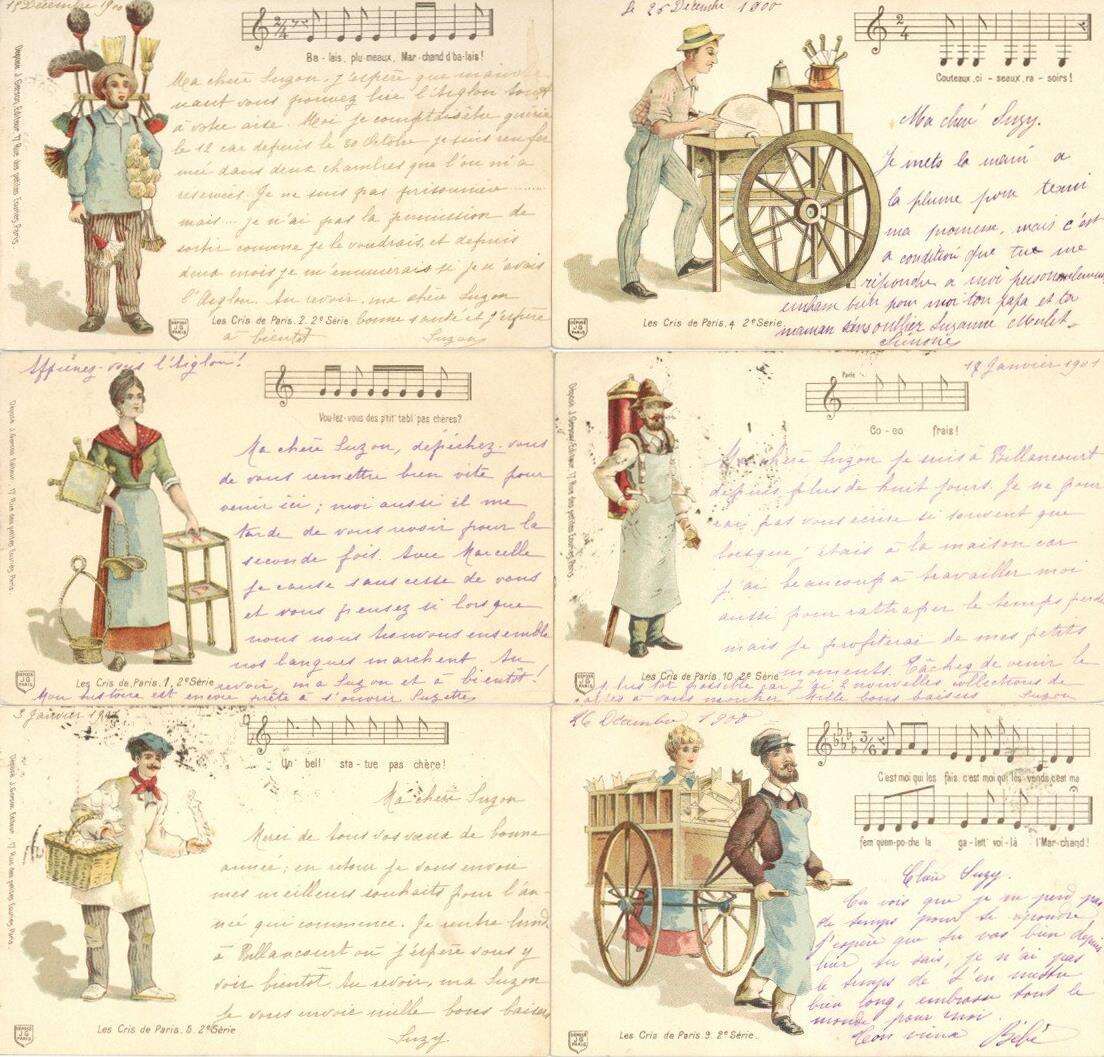 18 Décembre 1900
Ba-lais, plu-meaux, Mar-chand d'ba-lais!
Ma chère Suzon, j'espère que maintenant
vous pouvez lire l'Aiglon tout
à votre aise. Moi je compte être guérie
le 12 car depuis le 30 Octobre je suis renfer
mée dans deux chambres que l'on m'a
reservées. Je ne suis pas prisonnière
mais... je n'ai pas la permission de
sortir comme je le voudrais, et depuis
deux mois je m'ennuierais si je n'avais
l'Aiglon. Au revoir, ma chère Suzon
bonne santé et j'espère
à bientôt
Suzon
Les Cris de Paris. 2. 2e Série
DEPOSÉ
J.G
PARIS
Le 26 Décembre 1900
Couteaux, ci-seaux, ra-soirs!
Ma chère Suzy.
Je mets la main a
la plume pour tenir
ma promesse, mais c'est
a condition que tu me
répondras a moi personnellement
embrasse bien pour moi ton papa et ta
maman sans oublier Suzanne
Simone
Les Cris de Paris. 4 2e Série
DEPOSÉ
J.G
PARIS
Apprenez-vous l'Aiglon!
Vou-lez-vous des p'tit' tabl' pas chères?
Ma chère Suzon, dépêchez-vous
de vous remettre bien vite pour
venir ici; moi aussi il me
tarde de vous revoir pour la
seconde fois. Avec Marcelle
je cause sans cesse de vous
et vous pensez si lorsque
nous nous trouvons ensemble
nos langues marchent. Au
revoir, ma Suzon et à bientôt!
Mon histoire est encore prête à s'ouvrir Suzette
Les Cris de Paris. 1. 2e Série
DEPOSÉ
J.G
PARIS
18 Janvier 1901
Co-co frais!
Ma chère Suzon je suis à Billancourt
depuis plus de huit jours. Je ne pour
rai pas vous écrire si souvent que
lorsque j'étais à la maison car
j'ai beaucoup à travailler moi
aussi pour rattraper le temps perdu
mais je profiterai de mes petits
moments. Tâchez de venir le
plus tôt possible car j'ai 2 nouvelles collections de
cartes à vous montrer Mille bons baisers Suzon
Les Cris de Paris. 10. 2e Série
DEPOSÉ
J.G
PARIS
3 Janvier
Un' bell' sta-tue pas chère!
Ma chère Suzon
Merci de tous vos vœux de bonne
année; en retour je vous envoie
mes meilleurs souhaits pour l'an-
née qui commence. Je rentre lundi
à Billancourt où j'espère vous y
voir bientôt. Au revoir, ma Suzon
je vous envoie mille bons baisers
Suzy
Les Cris de Paris. 5. 2e Série
DEPOSÉ
J.G
PARIS
26 Décembre 1900
C'est moi qui les fais, c'est moi qui les vends, c'est ma
fem' quem-po-che la ga-lett' voi-là l'Mar-chand!
Chère Suzy.
Tu vois que je ne perd pas
de temps pour te répondre
J'espère que tu vas bien depuis
hier tu sais, je n'ai pas
le temps de t'en mettre
bien long, embrasse tout le
monde pour moi.
Bébé
Les Cris de Paris. 9. 2e Série.
DEPOSÉ
J.G
PARIS